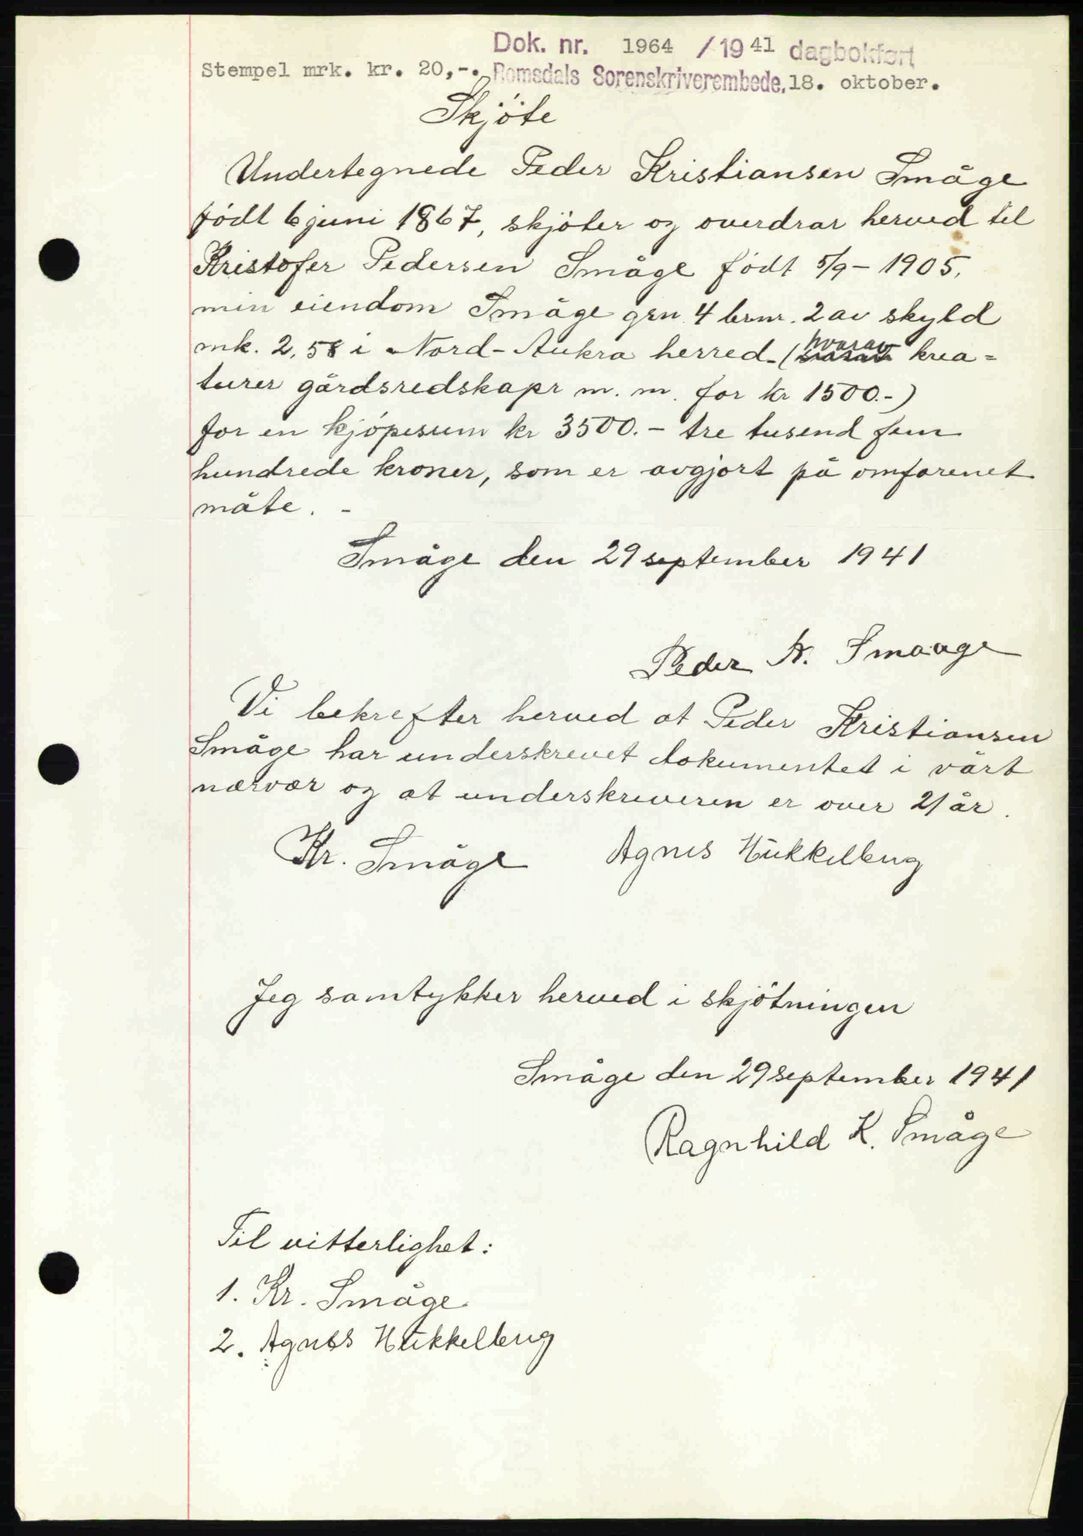 Dok. nr. 1964 / 1941 dagbokført
Stempel mrk. kr. 20,-. Romsdals Sorenskriverembede, 18. oktober.
Skjöte
Undertegnede Peder Kristiansen Småge
født 6 juni 1867, skjöter og overdrar herved til
Kristofer Pedersen Småge født 5/9 – 1905,
min eiendom Småge grn. 4 brnr. 2 av skyld
mk. 2,58 i Nord-Aukra herred – (hvorav krea=
turer gårdsredskapr m. m. for kr 1500.-)
for en kjöpesum kr 3500.- tre tusend fem
hundrede kroner, som er avgjort på omforenet
måte. -
Småge den 29 september 1941
Peder K. Smaage
Vi bekrefter herved at Peder Kristiansen
Småge har underskrevet dokumentet i vårt
nærvær og at underskriveren er over 21 år.
Kr. Småge Agnes Hukkelberg
Jeg samtykker herved i skjötningen
Småge den 29 september 1941
Ragnhild K. Småge
Til vitterlighet:
1. Kr. Småge
2. Agnes Hukkelberg